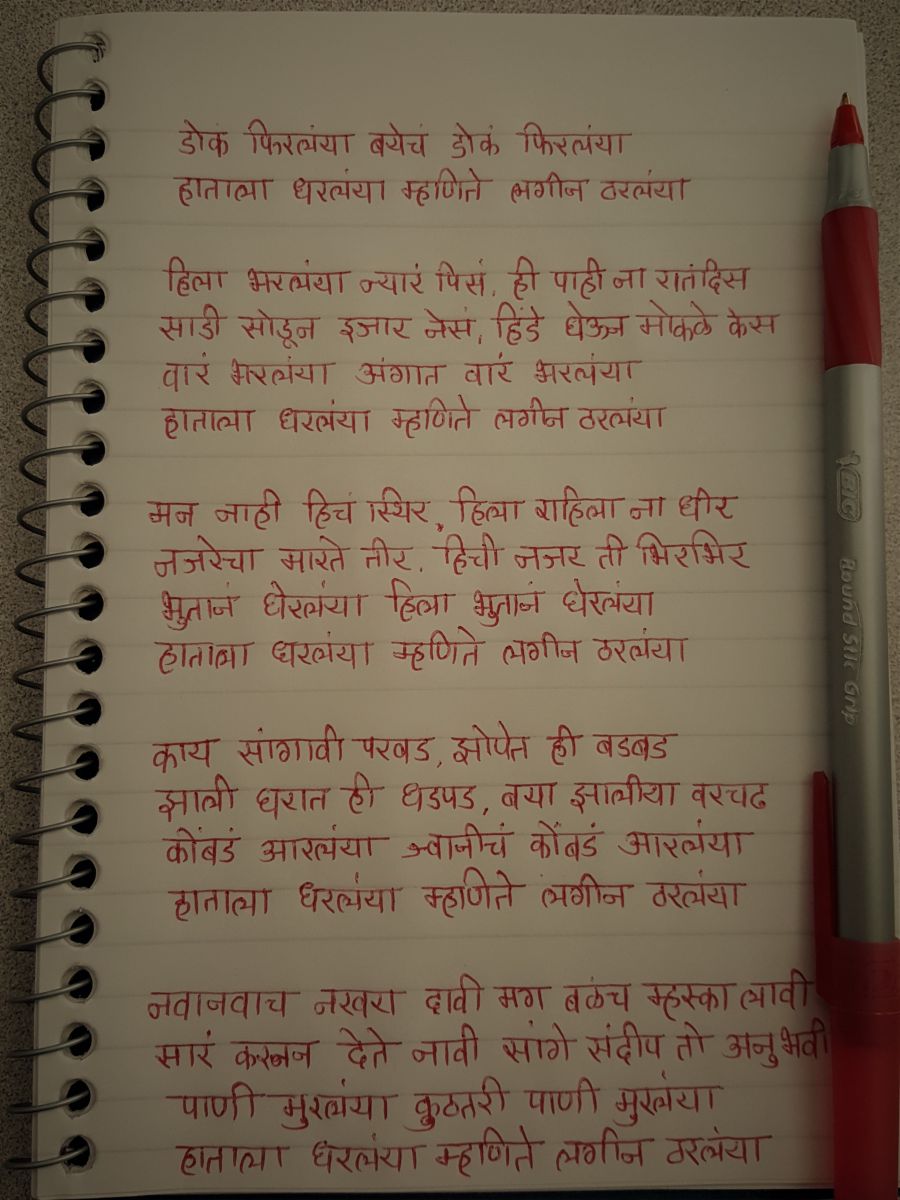 डोकं फिरलंया बयेचं डोकं फिरलंया
हाताला धरलंया म्हणिते लगीन ठरलंया
हिला भरलंया न्यारं पिसं, ही पाही ना रातंदिस
साडी सोडून इजार नेसं, हिंडे घेऊन मोकळे केस
वारं भरलंया अंगात वारं भरलंया
हाताला धरलंया म्हणिते लगीन ठरलंया
मन नाही हिचं स्थिर, हिला राहिला ना धीर
नजरेचा मारते तीर, हिची नजर ती भिरभिर
भुतानं घेरलंया हिला भुतानं घेरलंया
हाताला धरलंया म्हणिते लगीन ठरलंया
काय सांगावी परवड, झोपेत ही बडबड
झाली घरात ही धडपड, बया झालीया वरचढ
कोंबडं आरलंया ज्वानीचं कोंबडं आरलंया
हाताला धरलंया म्हणिते लगीन ठरलंया
नवानवाच नखरा दावी मग बळंच म्हस्का लावी
सारं करून देते नावी सांगे संदीप तो अनुभवी
पाणी मुरलंया कुठतरी पाणी मुरलंया
हाताला धरलंया म्हणिते लगीन ठरलंया
BIC Round Stic Grip